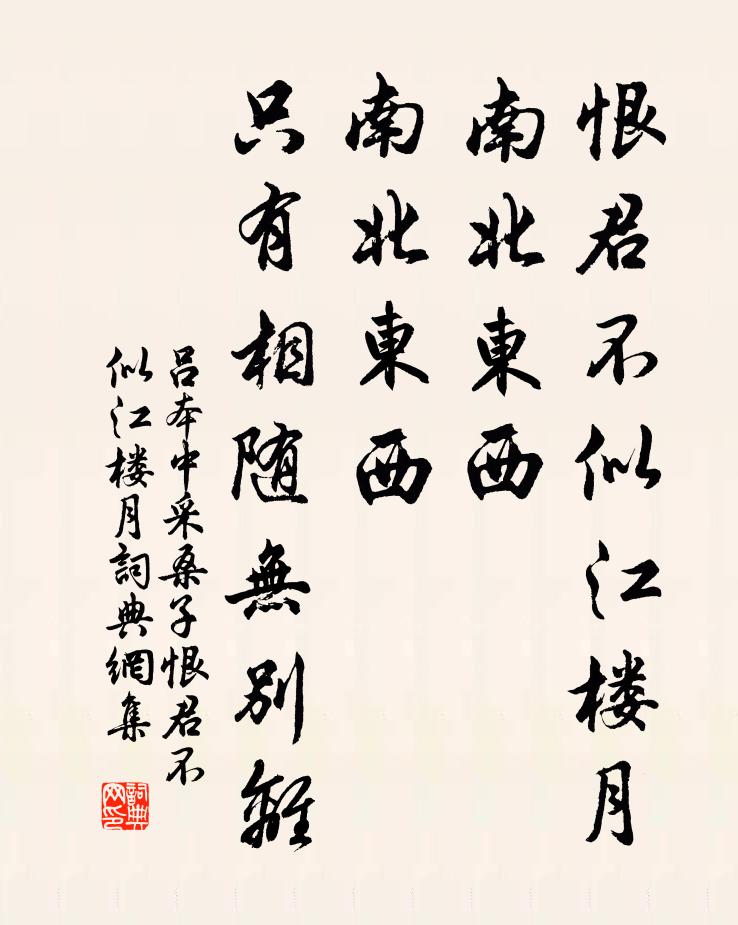 恨君不似江楼月
南北東西
南北東西
只有相随無别離
吕本中采桑子恨君不
似江楼月詞典網集
詞典網印